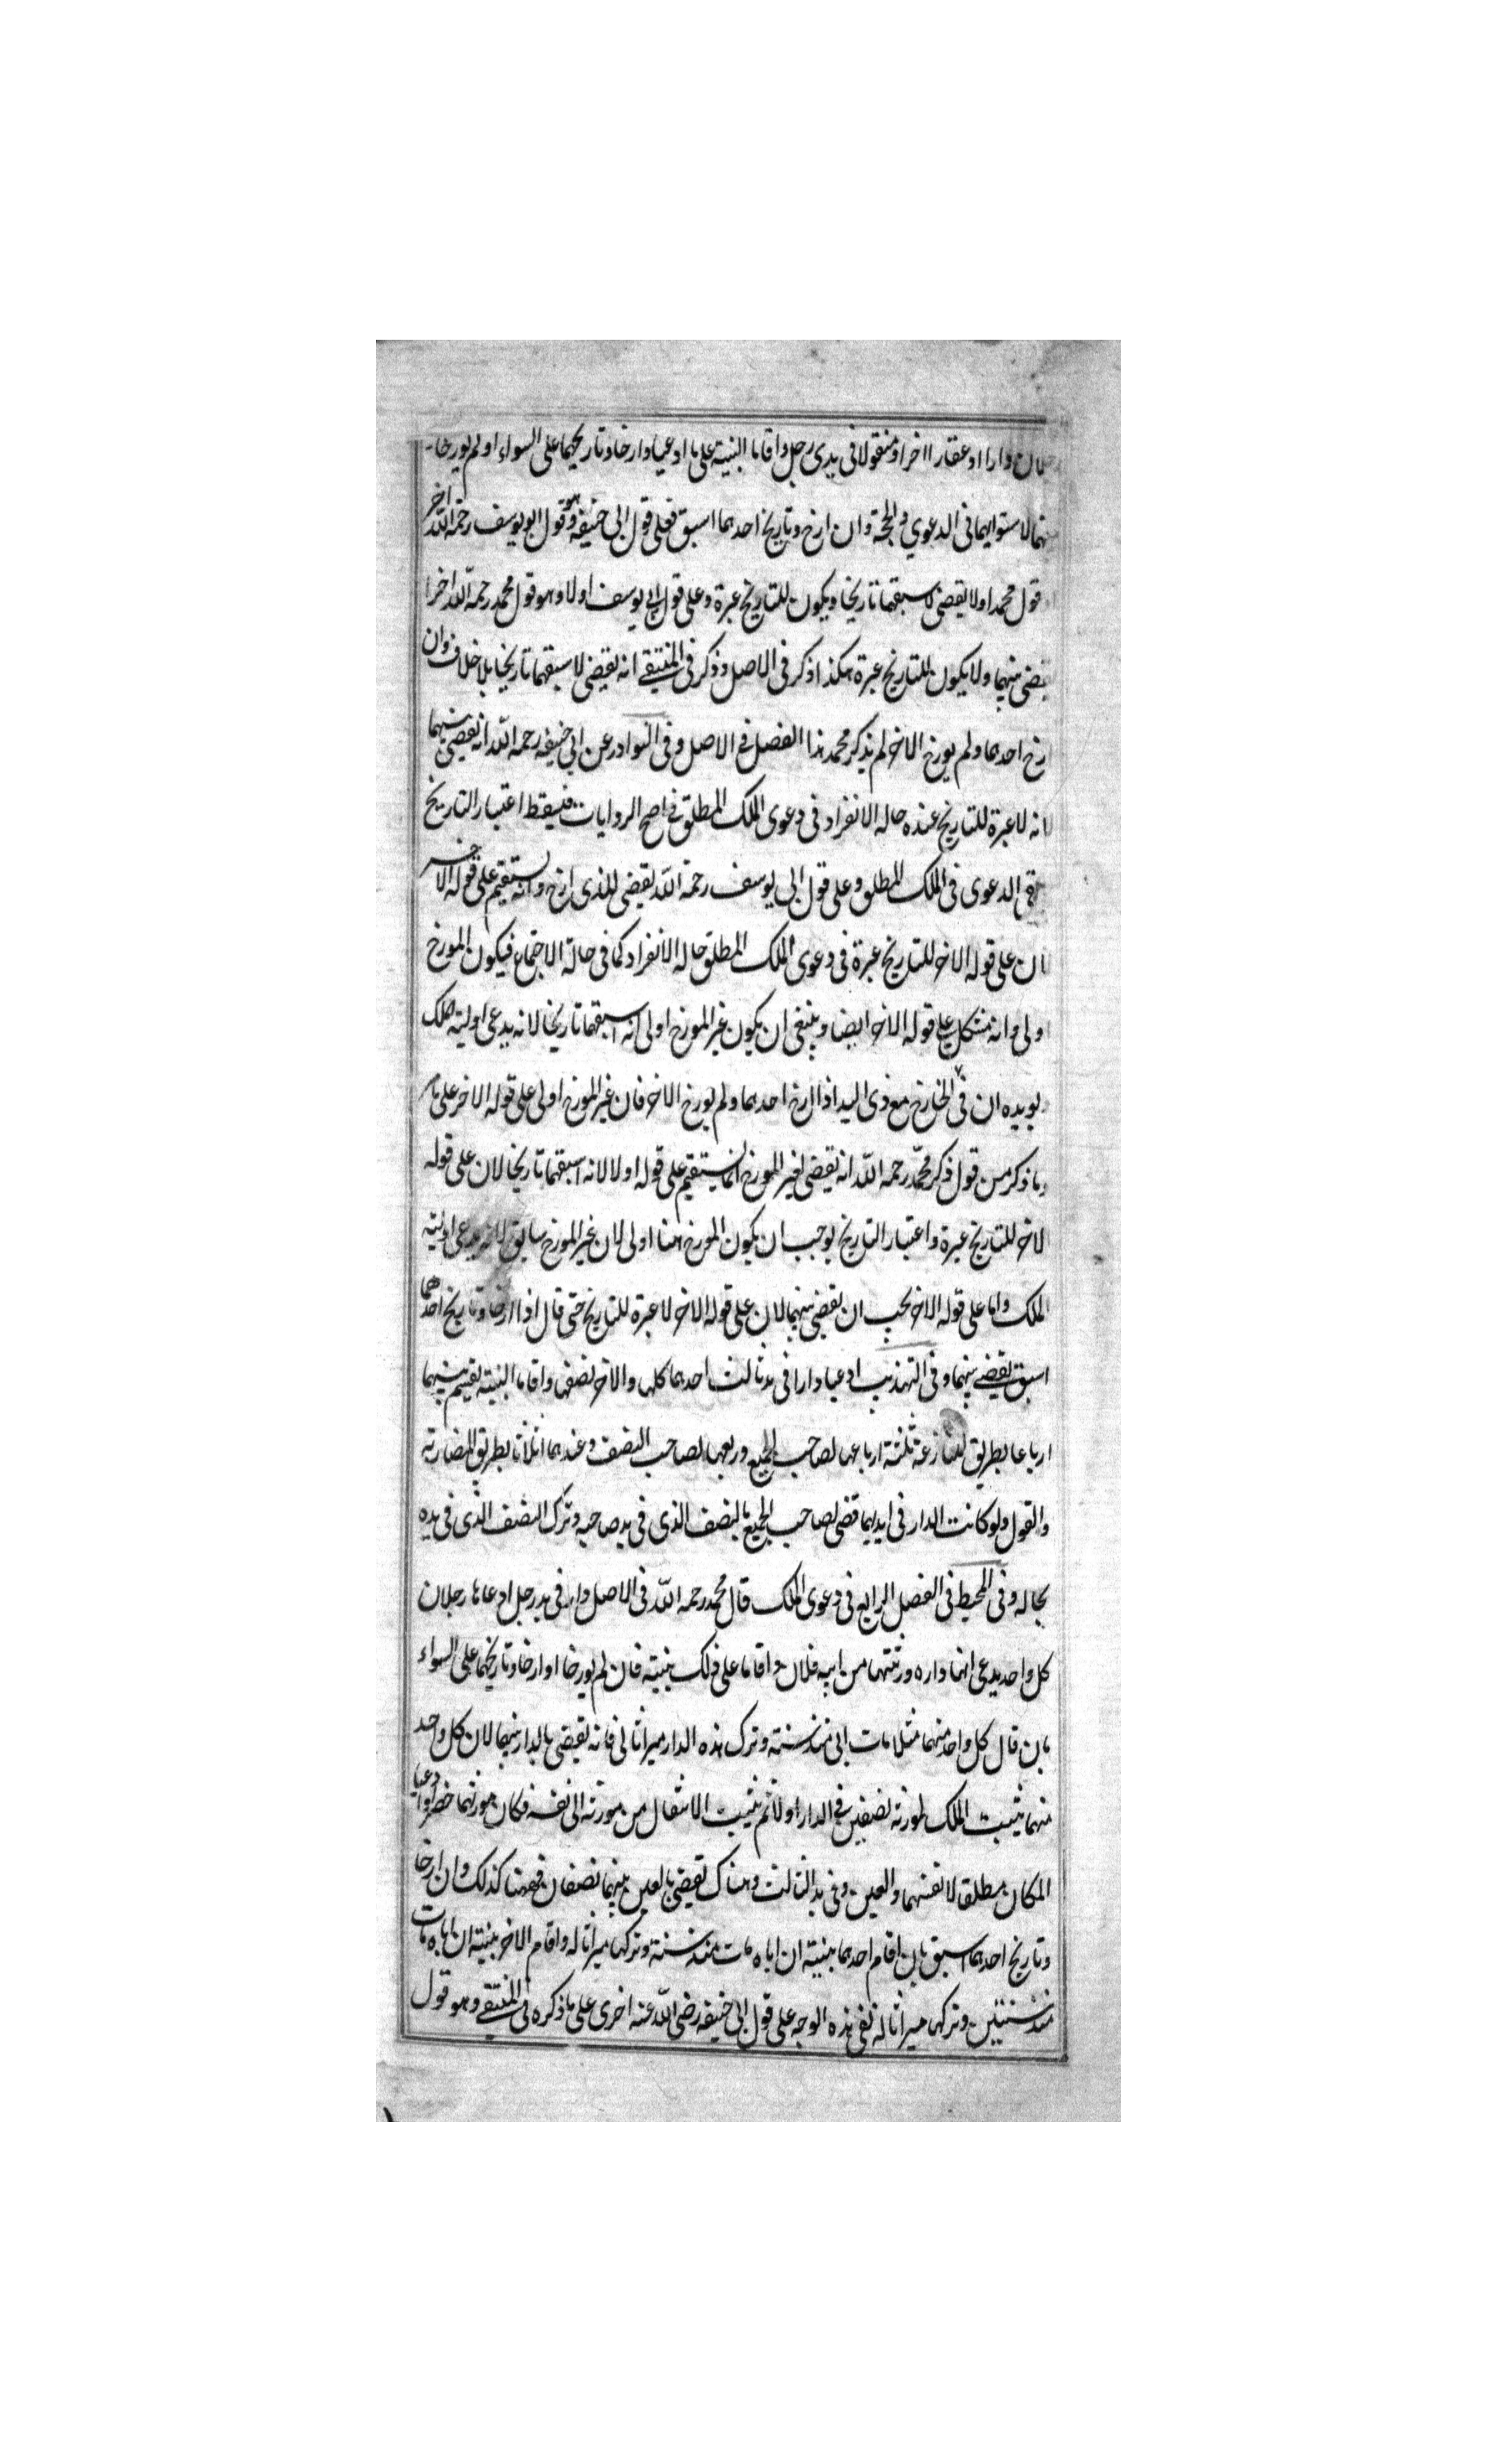 دارا او عقارا اخر او منقولا فى يدى رجل واقاما البنية على ما ادعيا وارخا وتاريخهما على السواء او لم يورخا
لاستوايهما فى الدعوي والحجة وان ارخ وتاريخ احدهما اسبق فعلى قول ابى حنيفه وهو قول ابو يوسف رحمة الله اخر
قول محمد اولا يقضى لاسبقهما تاريخا ويكون للتاريخ عبرة وعلى قول ابى يوسف اولا وهو قول محمد رحمه الله اخرا
يقضى بينهما ولا يكون للتاريخ عبرة هكذا ذكر فى الاصل وذكر فى المنتقى انه يقضى لاسبقهما تاريخا بلا خلاف وان
ارخ احدهما ولم يورخ الاخر لم يذكر محمد هذا الفصل فى الاصل وفى النوادر عن ابى حنيفه رحمه الله انه يقضى بينهما
لانه لا عبرة للتاريخ عنده حاله الانفراد فى دعوى الملك المطلق فى اصح الروايات فيسقط اعتبار التاريخ
الدعوى فى الملك المطلق وعلى قول ابى يوسف رحمة الله يقضى للذى ارخ وانه يستقيم على قوله الاخر
لان على قوله الاخر للتاريخ عبرة فى دعوى الملك المطلق حاله الانفراد كما فى حالة الاجتماع فيكون المورخ
اولى وانه مشكل على قوله الاخر ايضا وينبغى ان يكون غير المورخ اولى لانه اسبقهما تاريخا لانه يدعى اولية الملك
يويده ان فى الخارج مع ذى اليد اذا ارخ احدهما ولم يورخ الاخر فان غير المورخ اولى على قوله الاخر على ما
وما ذكر من قول ذكر محمد رحمه الله انه يقضى لغير المورخ انما يستقيم على قوله اولا لانه اسبقهما تاريخا لان على قوله
الاخر للتاريخ عبرة واعتبار التاريخ يوجب ان يكون المورخ ههنا اولى لان غير المورخ سابق لانه يدعى اولية
الملك واما على قوله الاخر يجب ان يقضى بينهما لان على قوله الاخر لا عبرة للتاريخ حتى قال اذا ارخا وتاريخ احدهما
اسبق يقضى بينهما وفى التهذيب ادعيا دارا فى يد ثالث احدهما كلها والاخر نصفها واقاما البنية يقسم بينهما
ارباعا بطريق المنازعة ثلثة ارباعها لصاحب الجميع وربعها لصاحب النصف وعندهما اثلاثا بطريق المضاربة
والقول ولو كانت الدار فى ايديهما قضى لصاحب الجميع بالنصف الذى فى يد صاحبه وترك النصف الذى فى يده
بحاله وفى المحيط فى الفصل الرابع فى دعوى الملك قال محمد رحمه الله فى الاصل دار فى يد رجل ادعاها رجلان
كل واحد يدعى انها داره ورثتهما من ابيه فلان واقاما على ذلك بنيته فان لم يورخا او ارخا وتاريخهما على السواء
بان قال كل واحد منهما مثلا مات ابى منذ سنة وترك هذه الدار ميراثا لى فانه يقضى بالدار بينهما لان كل واحد
منهما يثبت الملك لمورثه نصفين فى الدار اولا ثم يثبت الانتقال من مورثه الى نفسه فكان مورثهما حضرا وادعيا
المكان مطلقا لانفسهما والعين وفى يد الثالث وهناك يقضى بالعين بينهما نصفان فههنا كذلك وان ارخا
وتاريخ احدهما اسبق بان اقام احدهما بنيته ان اباه مات منذ سنة وتركها ميراثا له واقام الاخر بنيته ان اباه مات
منذ سنتين وتركها ميراثا له ففى هذه الوجه على قول ابى حنيفه رضى الله عنه اخرى على ما ذكره فى المنتقى وهو قول